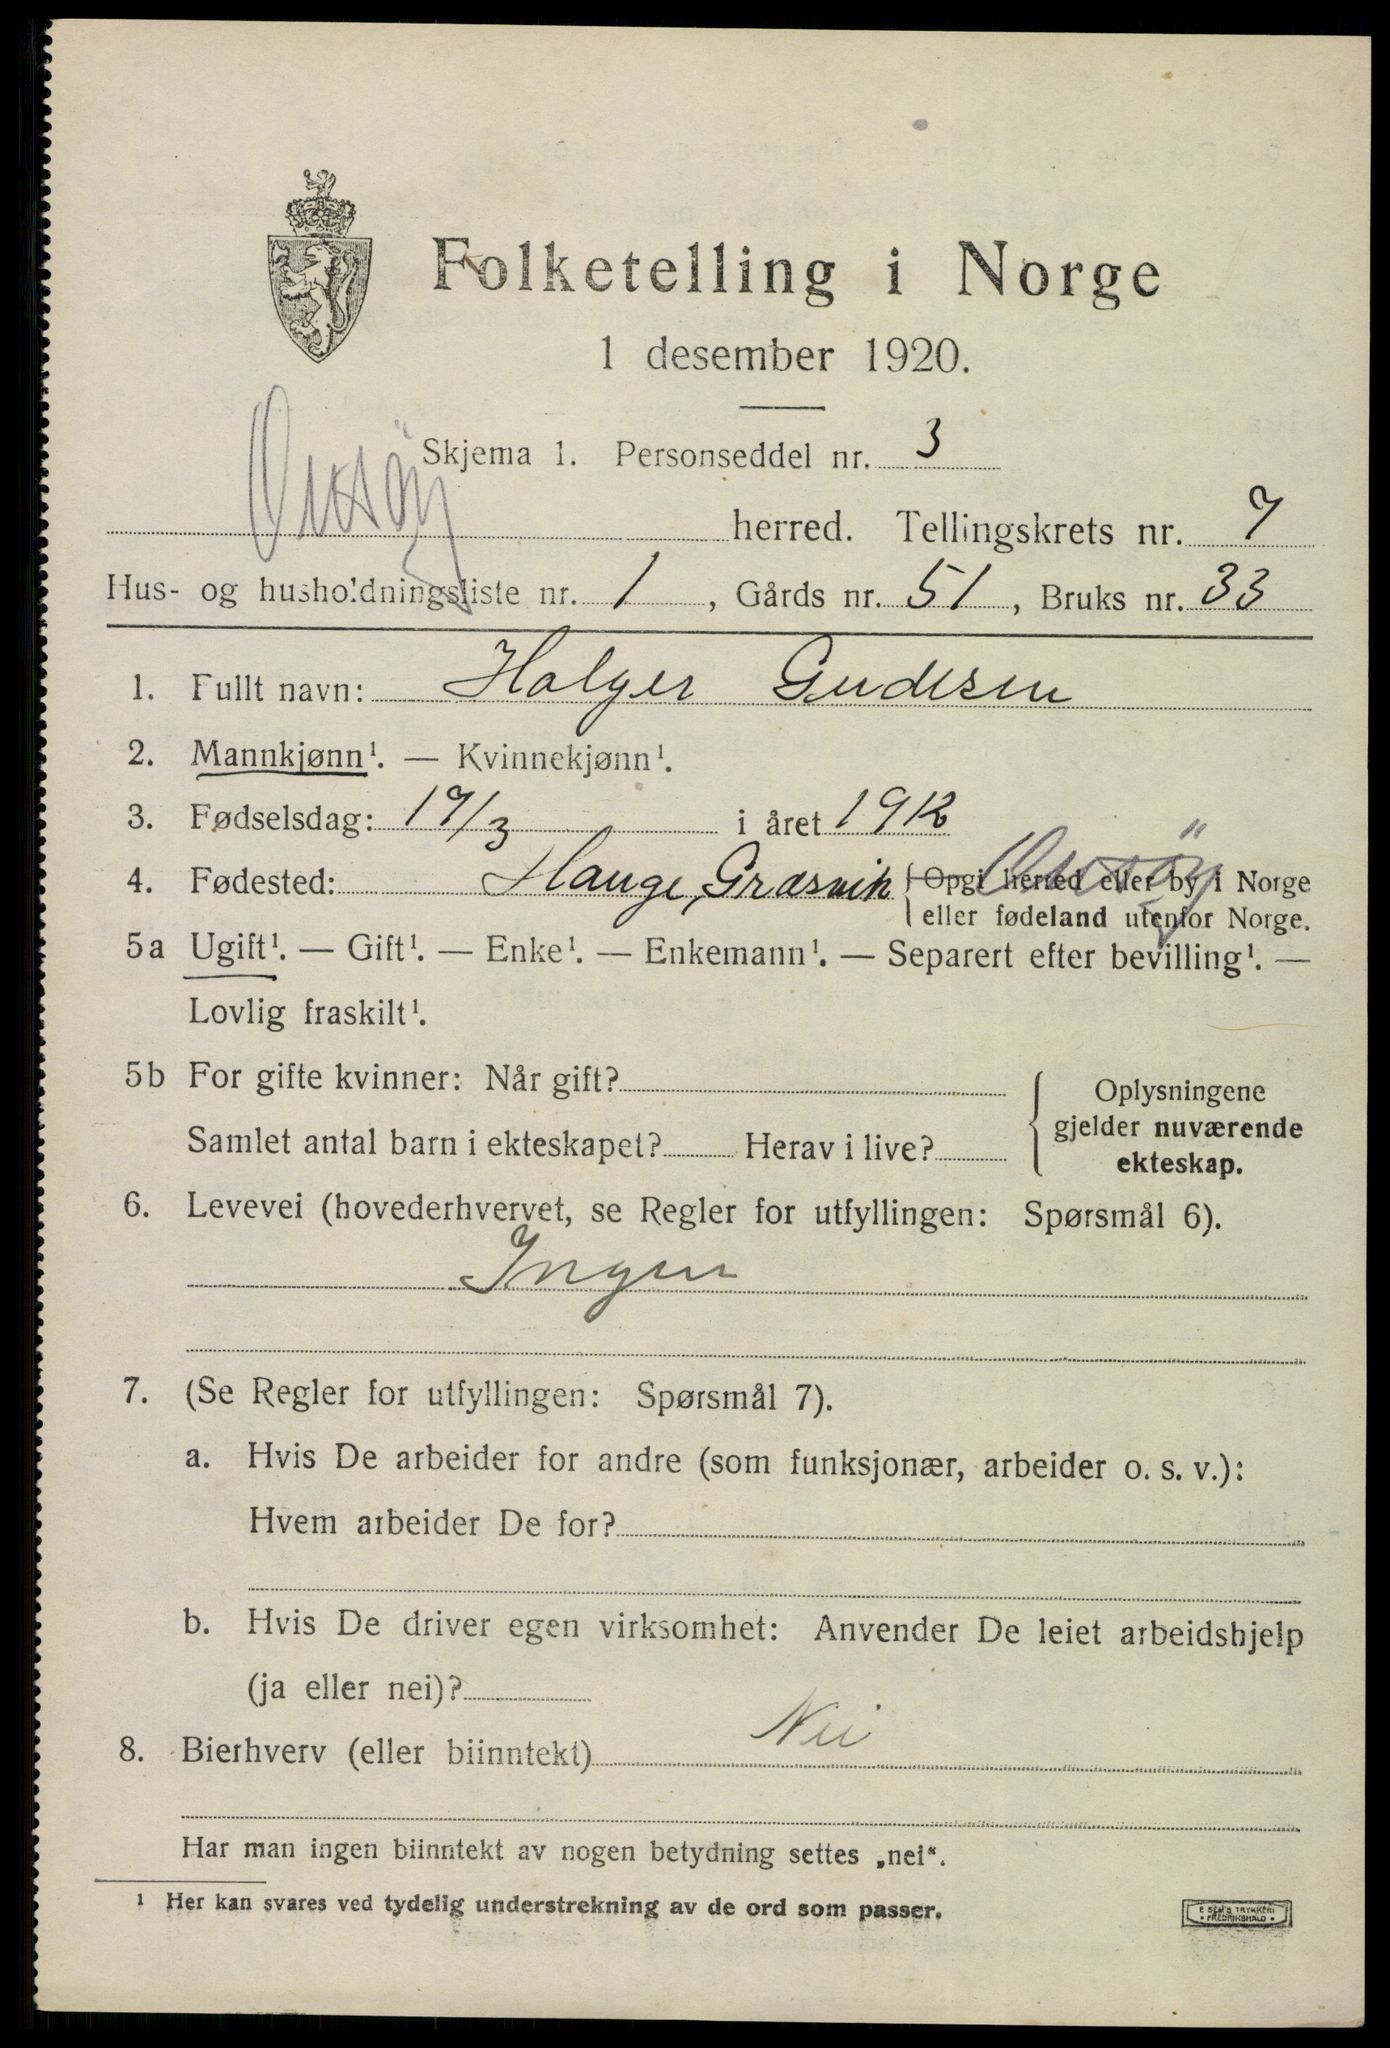 Folketelling i Norge
1 desember 1920.
Skjema 1. Personseddel nr. 3
Onsöy herred. Tellingskrets nr. 7
Hus- og husholdningsliste nr. 1, Gårds nr. 51, Bruks nr. 33
1. Fullt navn: Holger Gudesen
2. Mannkjønn¹. — Kvinnekjønn¹.
3. Fødselsdag: 17/3 i året 1912
4. Fødested: Hauge, Græsvik { Opgi herred eller by i Norge Onsöy
eller fødeland utenfor Norge.
5a Ugift¹. — Gift¹. — Enke¹. — Enkemann¹. — Separert efter bevilling¹. —
Lovlig fraskilt¹.
5b For gifte kvinner: Når gift?
Samlet antal barn i ekteskapet? Herav i live?
{ Oplysningene
gjelder nuværende
ekteskap.
6. Levevei (hovederhvervet, se Regler for utfyllingen: Spørsmål 6).
Ingen
7. (Se Regler for utfyllingen: Spørsmål 7).
a. Hvis De arbeider for andre (som funksjonær, arbeider o. s. v.):
Hvem arbeider De for?
b. Hvis De driver egen virksomhet: Anvender De leiet arbeidshjelp
(ja eller nei)?
8. Bierhverv (eller biinntekt) Nei
Har man ingen biinntekt av nogen betydning settes „nei“.
¹ Her kan svares ved tydelig understrekning av de ord som passer.
E SEM'S TRYKKERI
• FREDRIKSHALD •